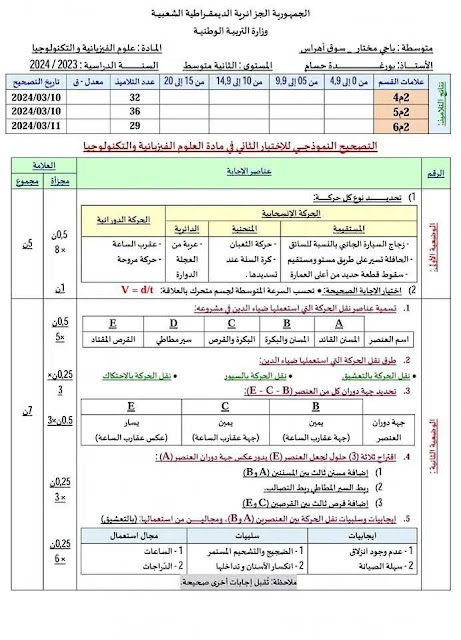 الجمهورية الجزائرية الديمقراطية الشعبية
وزارة التربية الوطنية
متوسطة: باجي مختار _ سوق أهراس
المادة: علوم الفيزيائية والتكنولوجيا
الأستاذ: بورغدة حسام
المستوى: الثانية متوسط
السنة الدراسية: 2023 / 2024
نتائج التلاميذ:
علامات القسم
من 0 إلى 4,9
من 05 إلى 9,9
من 10 إلى 14,9
من 15 إلى 20
عدد التلاميذ
معدل - ق
تاريخ التصحيح
2م4
32
2024/03/10
2م5
36
2024/03/10
2م6
29
2024/03/11
التصحيح النموذجي للإختبار الثاني في مادة العلوم الفيزيائية والتكنولوجيا
الرقم
عناصر الإجابة
العلامة
مجزأة
مجموع
الوضعية الأولى:
1) تحديد نوع كل حركة:
الحركة الإنسحابية
الحركة الدورانية
المستقيمة
المنحنية
الدائرية
- زجاج السيارة الجانبي بالنسبة للسائق
- حركة الثعبان
- عربة من
- عقرب الساعة
- الحافلة تسير على طريق مستو ومستقيم
- كرة السلة عند
العجلة
- حركة مروحة
- سقوط قطعة حديد من أعلى العمارة
تسديدها.
الدوارة
0,5ن
× 8
5ن
2) اختيار الإجابة الصحيحة: • تحسب السرعة المتوسطة لجسم متحرك بالعلاقة: V = d/t
1ن
الوضعية الثانية:
1. تسمية عناصر نقل الحركة التي استعملها ضياء الدين في مشروعه:
العنصر
A
B
C
D
E
اسم العنصر
المسنن القائد
المسنن والبكرة
البكرة والقرص
سير مطاطي
القرص المقتاد
0,5ن
×5
2. طرق نقل الحركة التي استعملها ضياء الدين:
• نقل الحركة بالتعشيق
• نقل الحركة بالسيور
• نقل الحركة بالاحتكاك
0,25ن×
3
3. تحديد جهة دوران كل من العنصر (E - C - B):
جهة دوران
العنصر
B
C
E
يمين
(جهة عقارب الساعة)
يمين
(جهة عقارب الساعة)
يسار
(عكس عقارب الساعة)
0,5ن×3
7ن
4. اقتراح ثلاثة (3) حلول لجعل العنصر (E) يدور عكس جهة دوران العنصر (A):
1) إضافة مسنن ثالث بين المسننين (A وB)
2) ربط السير المطاطي ربط التصالب.
3) إضافة قرص ثالث بين القرصين (C وE)
0,25ن
× 3
5. إيجابيات وسلبيات نقل الحركة بين العنصرين (A وB)، ومجالين من استعمالها: (بالتعشيق)
ايجابيات
سلبيات
مجال استعمال
1- عدم وجود انزلاق
1- الضجيج والتشحيم المستمر
1- الساعات
2- سهلة الصيانة
2- انكسار الأسنان وتداخلها
2- الدراجات
0,25ن
× 6
ملاحظة: تُقبل إجابات أخرى صحيحة.